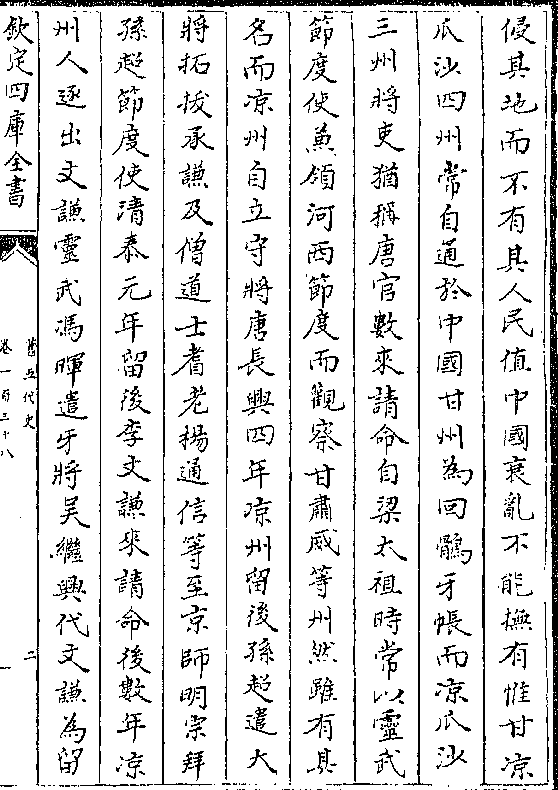 侵其地而不有其人民值中國衰亂不能撫有惟甘凉
瓜沙四州常自通於中國甘州為回鶻牙帳而凉瓜沙
三州將吏猶稱唐官數來請命自梁太祖時常以靈武
節度使兼領河西節度而觀察甘肅威等州然雖有其
名而凉州自立守將唐長興四年凉州留後孫超遣大
將拓拔承謙及僧道士耆老楊通信等至京師明宗拜
孫超節度使清泰元年留後李文謙來請命後數年凉
州人逐出文謙靈武馮暉遣牙將吳繼興代文謙為留
欽定四庫全書
舊五代史
卷一百三十八
二